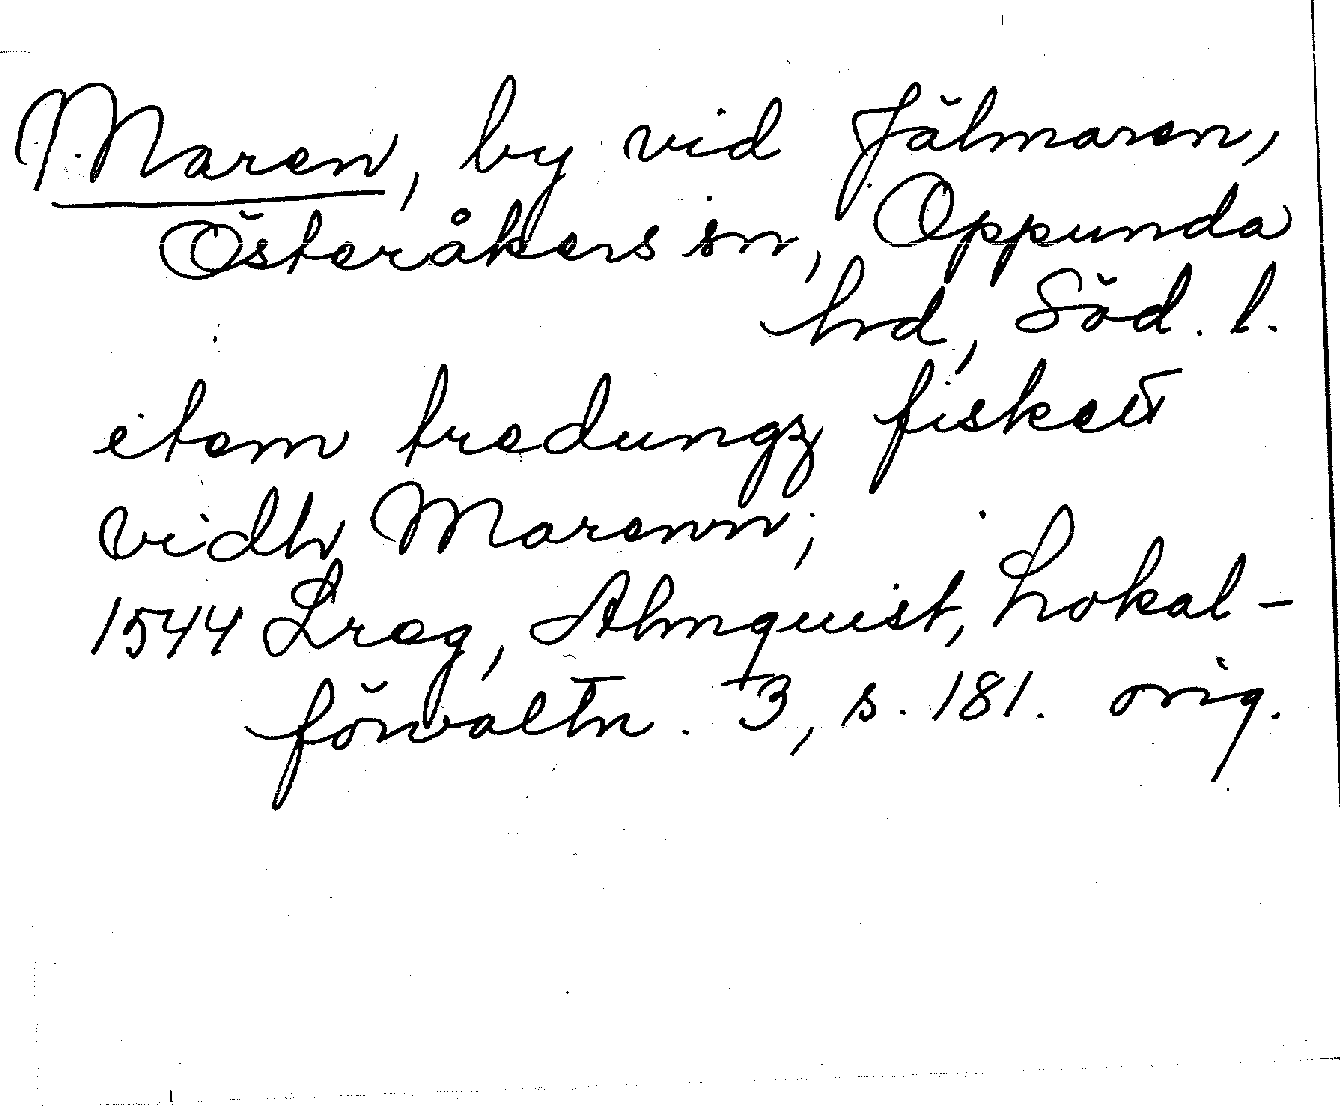 Maren, by vid Jälmaren,
Österåkers sn, Oppunda
hd, Söd. l.
item tredungz fiskett
vidh Marenn;
1544 Lreg, Almquist, Lokal-
förvaltn. 3, s. 181. orig.